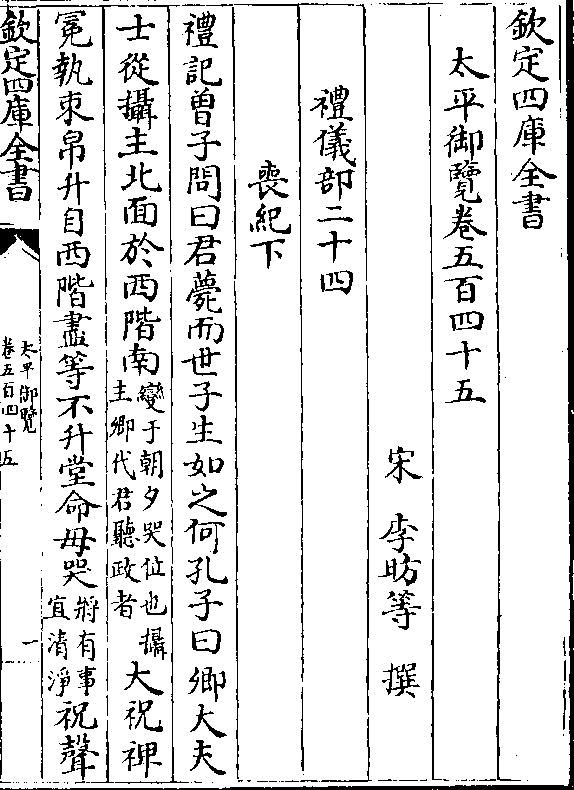 欽定四庫全書
太平御覽卷五百四十五
宋 李昉等 撰
禮儀部二十四
喪紀下
禮記曽子問曰君薨而世子生如之何孔子曰卿大夫
士從攝主北面於西階南變于朝夕哭位也攝主卿代君聽政者大祝裨
冕執束帛升自西階盡等不升堂命毋哭將有事宜清淨祝聲
欽定四庫全書
太平御覽
卷五百四十五
一